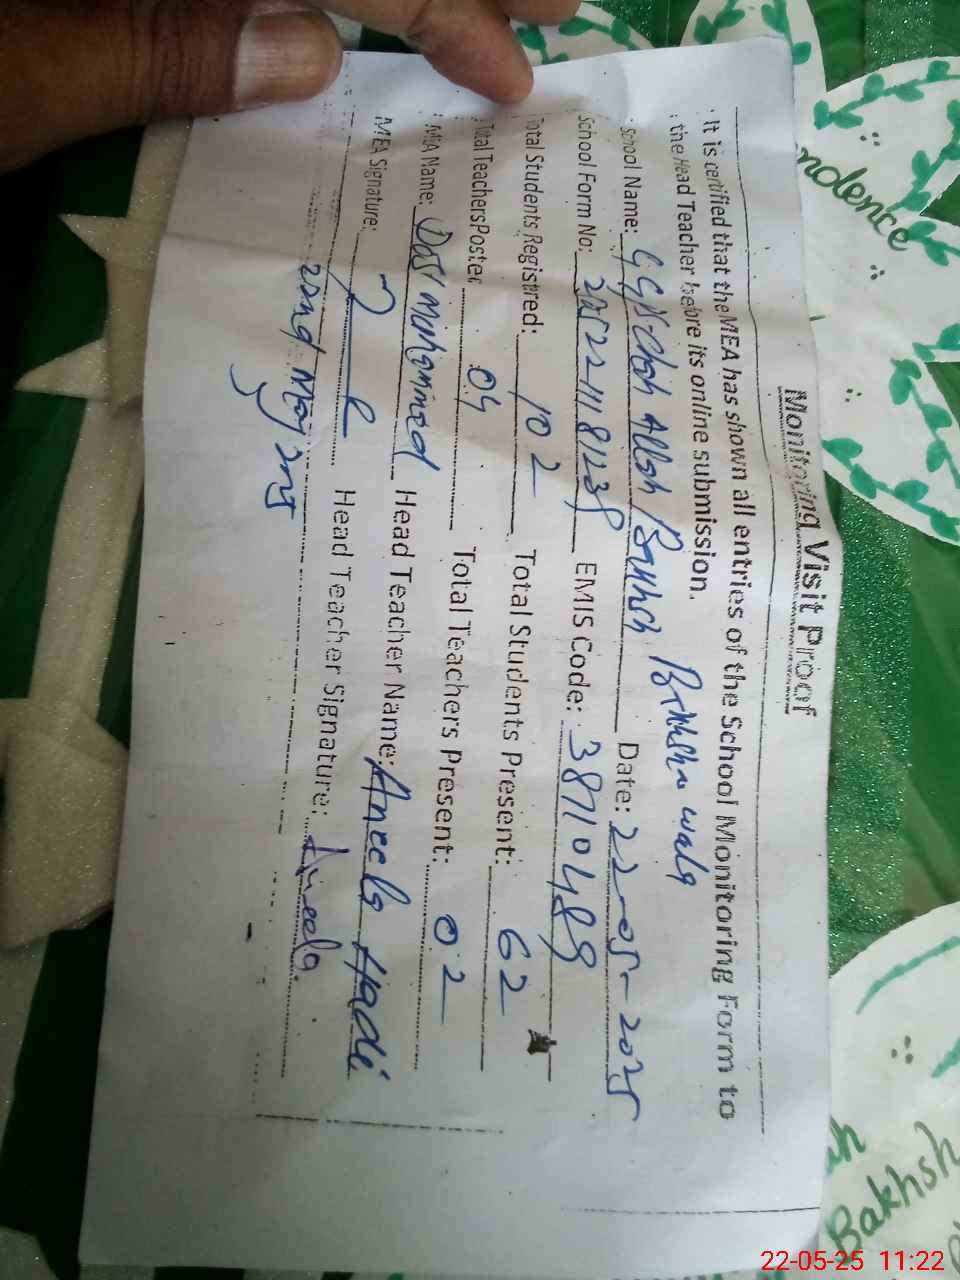 Monitoring Visit Proof
It is certified that the MEA has shown all entries of the School Monitoring Form to
the Head Teacher before its online submission.
School Name: Allah Bakhsh Date: 22-05-2025
School Form No: EMIS Code: 38710489
Total Students Registred: 102 Total Students Present: 62
Total TeachersPosted 04 Total Teachers Present: 02
MEA Name: Muhammed Head Teacher Name: Aneela Hadi
MEA Signature: Head Teacher Signature: Aneela.
22nd May 2025
ndence
Bakhsh
22-05-25 11:22